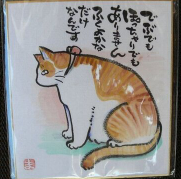 でぶでも
ぽっちゃりでも
ありません
ふくよかな
だけ
なんです